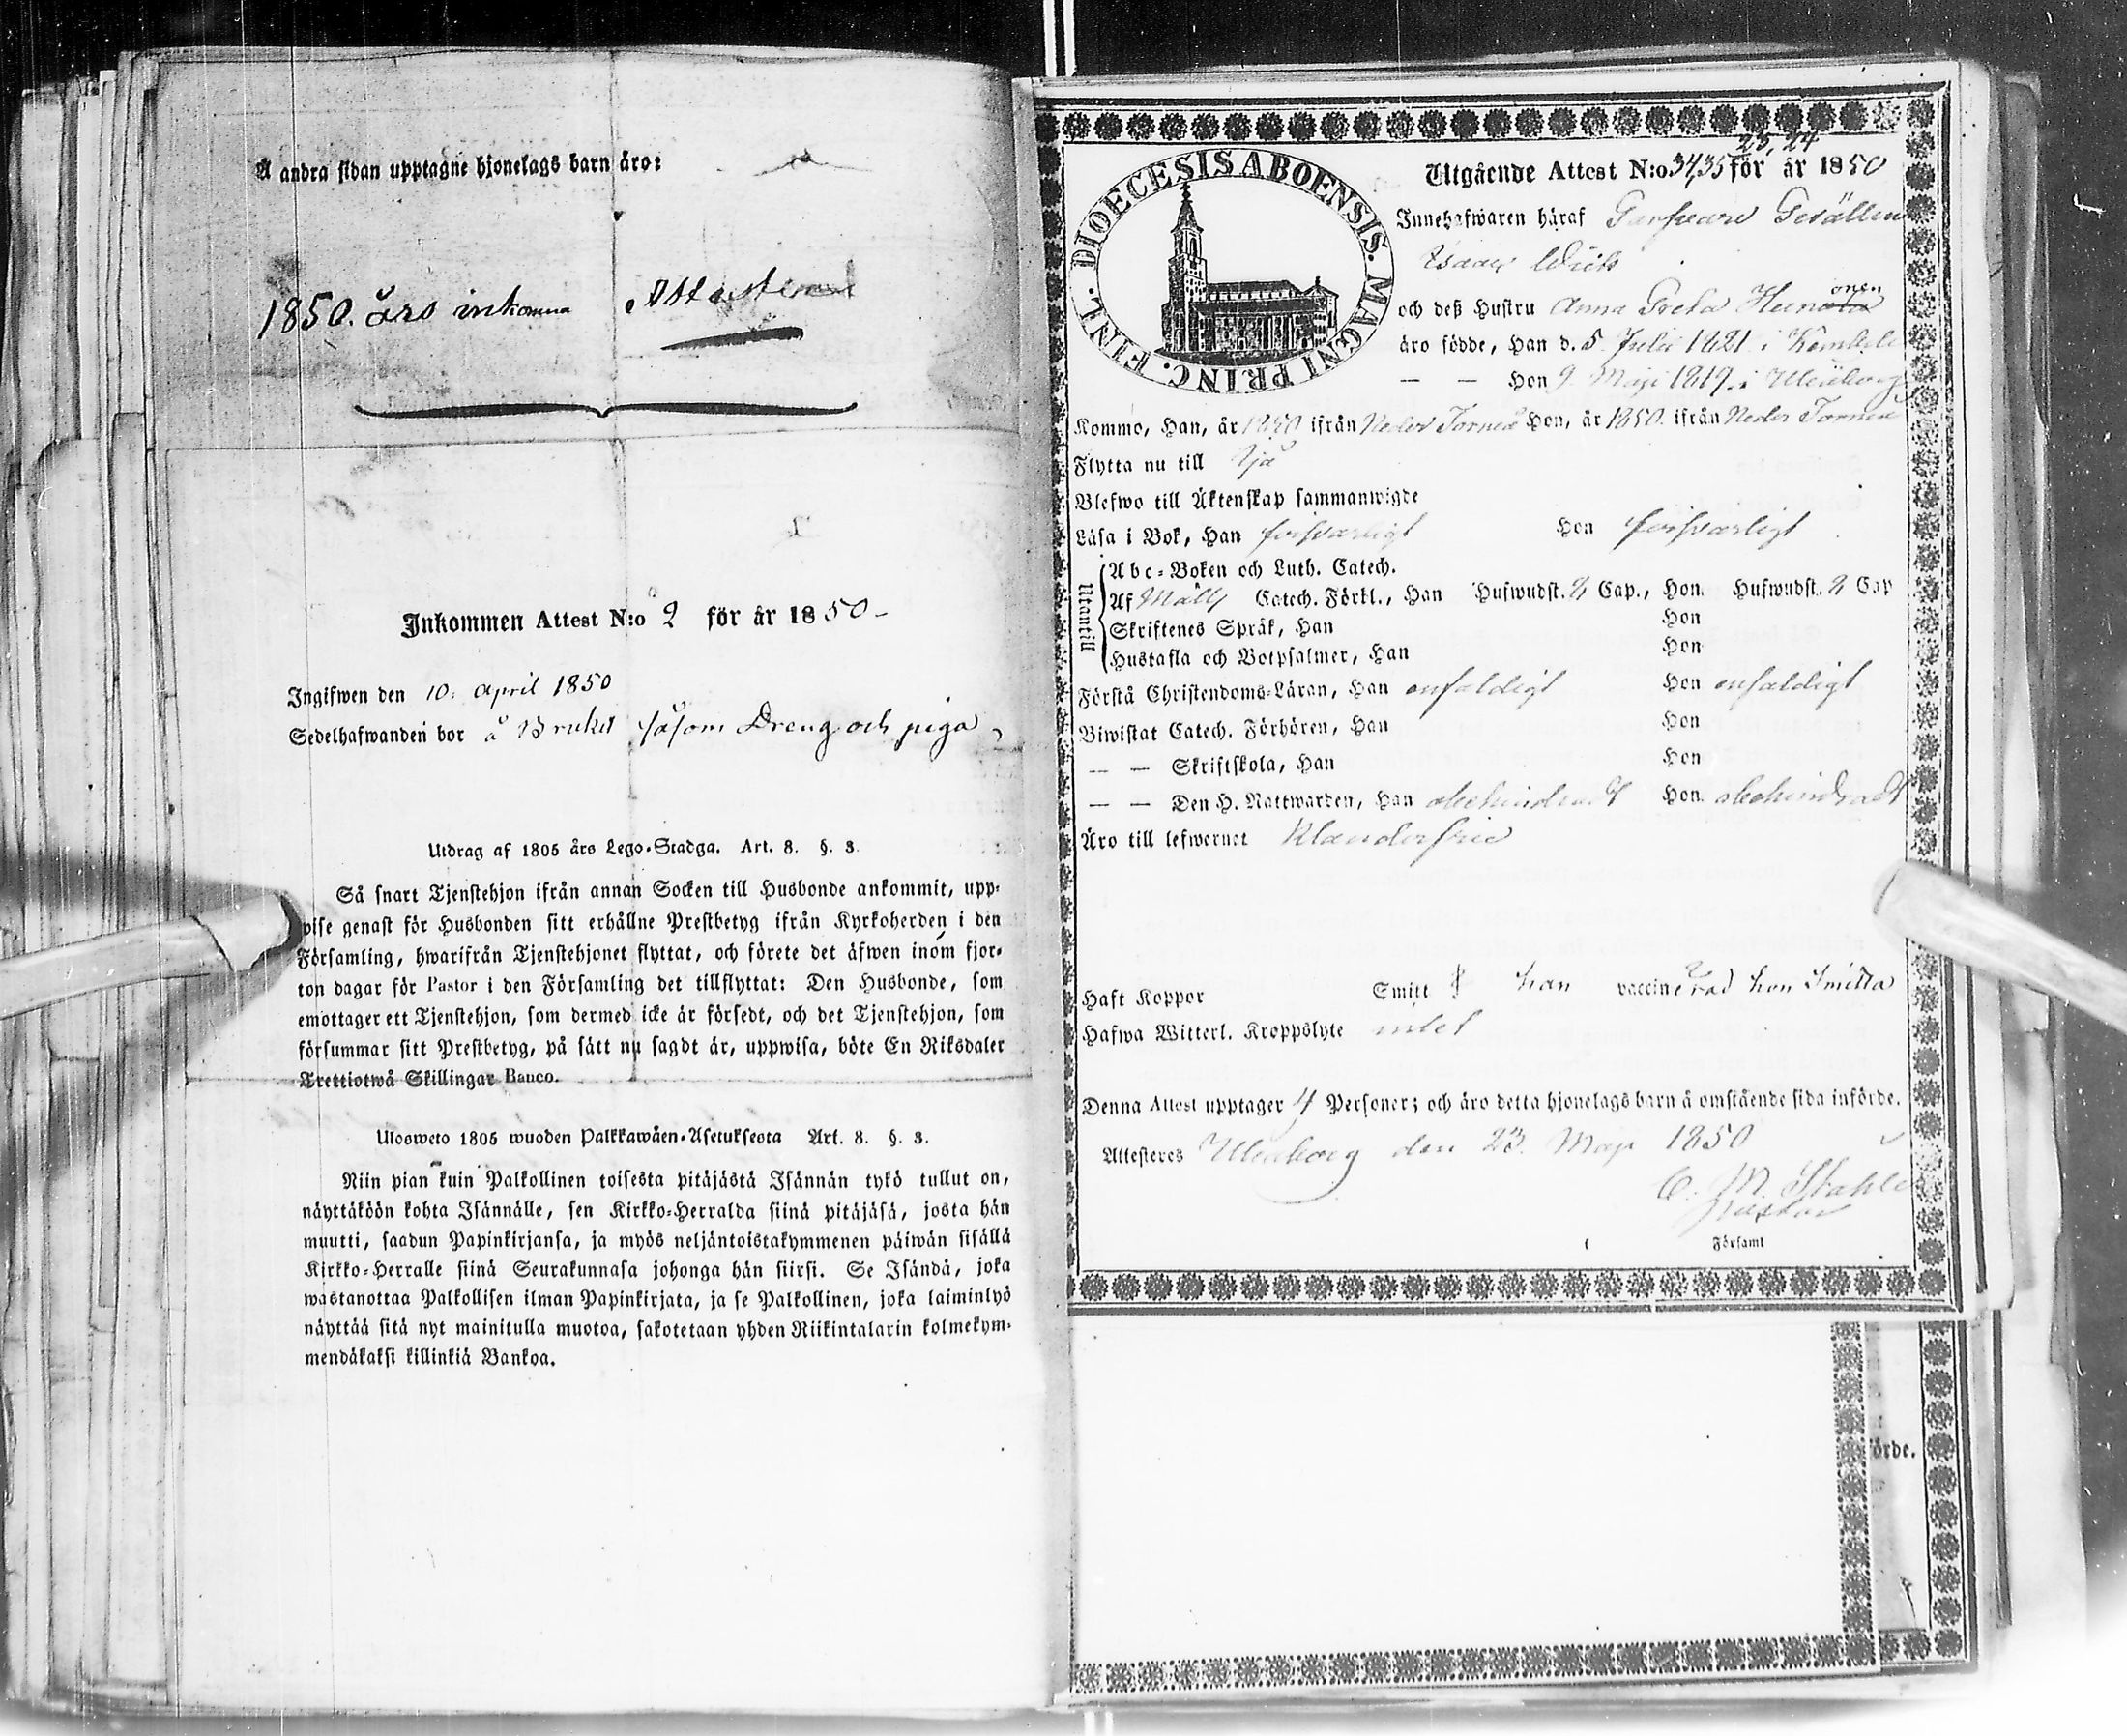 Å andra sidan upptagne hjonelags barn äro:
1850. års inkomna Attester
Inkommen Attest N:o 2 för år 1850
Ingifwen den 10. april 1850
Sedelhafwanden bor å Bruket såsom Dreng och piga
Utdrag af 1805 års Lego-Stadga. Art. 8. §. 3.
Så snart Tjenstehjon ifrån annan Socken till Husbonde ankommit, upp-
wise genast för Husbonden sitt erhållne Prestbetyg ifrån Kyrkoherden i den
Församling, hwarifrån Tjenstehjonet flyttat, och förete det äfwen inom fjor-
ton dagar för Pastor i den Församling det tillflyttat: Den Husbonde, som
emottager ett Tjenstehjon, som dermed icke är försedt, och det Tjenstehjon, som
försummar sitt Prestbetyg, på sätt nu sagdt är, uppwisa, böte En Riksdaler
Trettiotwå Skillingar Banco.
Ulosweto 1805 wuoden Palkkawäen-Asetuksesta Art. 8. §. 3.
Niin pian kuin Palkollinen toisesta pitäjästä Isännän tykö tullut on,
näyttäköön kohta Isännälle, sen Kirkko-Herralda siinä pitäjäsä, josta hän
muutti, saadun Papinkirjansa, ja myös neljäntoistakymmenen päiwän sisällä
Kirkko-Herralle siinä Seurakunnasa johonga hän siirsi. Se Isändä, joka
wastanottaa Palkollisen ilman Papinkirjata, ja se Palkollinen, joka laiminlyö
näyttää sitä nyt mainitulla muotoa, sakotetaan yhden Riikintalarin kolmekym-
mendäkaksi killinkiä Bankoa.
DIOECESIS ABOENSIS. MAGNI PRINC. FINL.
23, 24
Utgående Attest N:o 34,35 för år 1850
Innehafwaren häraf Garfware Gesällen
Isaac
onen
och deß Hustru Anna Greta
äro födde, Han d. 5 Julii 1821 i
— — Hon 9 Maji 1819 i Uleåborg
Kommo, Han, år 1850 ifrån Neder Torneå Hon, år 1850. ifrån Neder Torneå
Flytta nu till Ijo
Blefwo till Äktenskap sammanwigde
Läsa i Bok, Han försvarligt Hon försvarligt
Utantill
Abc-Boken och Luth. Catech.
Af Catech. Förkl., Han Hufwudst. 2 Cap., Hon Hufwudst. 2 Cap
Skriftenes Språk, Han Hon
Hustafla och Botpsalmer, Han Hon
Förstå Christendoms-Läran, Han enfaldigt Hon enfaldigt
Biwistat Catech. Förhören, Han Hon
— — Skriftskola, Han Hon
— — Den H. Nattwarden, Han obehindradt Hon obehindradt
Äro till lefwernet klanderfrie
Haft Koppor Smitt han vaccinerad hon Smitta
Hafwa Witterl. Kroppslyte intet
Denna Attest upptager 4 Personer; och äro detta hjonelags barn å omstående sida införde.
Attesteres Uleåborg den 23. Maji 1850
C. M. Stahle
Pastor
Församl
örde.